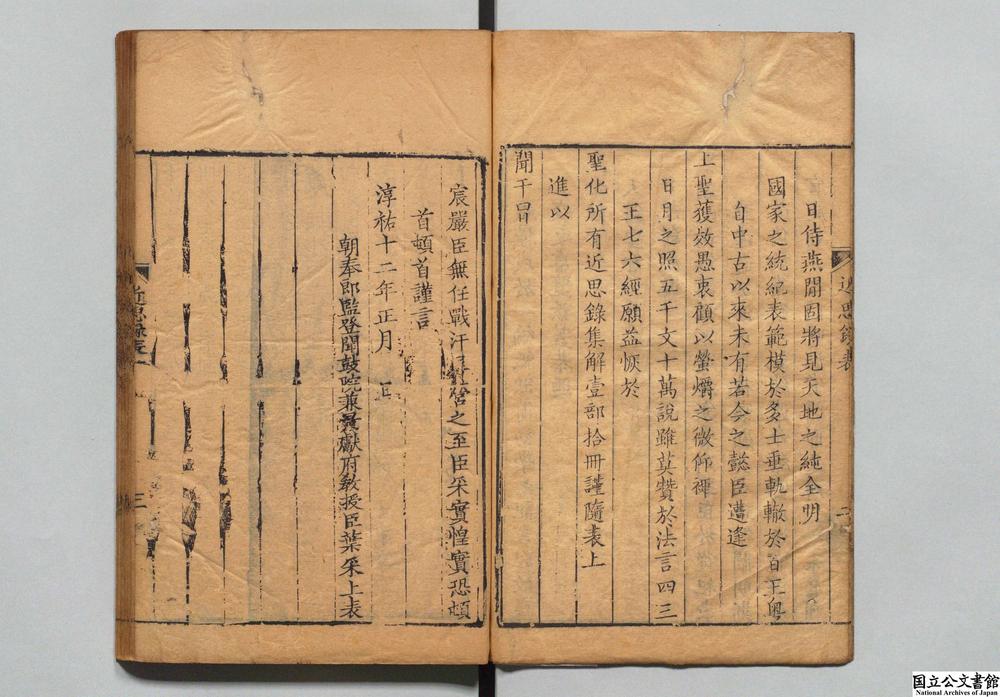 日侍燕閒固將見天地之純全明
國家之統紀表範模於多士垂軌轍於百王粤
自中古以來未有若今之懿臣遭逢
上聖獲效愚衷顧以螢爝之微仰裨
日月之照五千文十萬說雖莫贊於法言四三
王七六經願益恢於
聖化所有近思錄集解壹部拾冊謹隨表上
進以
聞干冒
近思錄表
宸嚴臣無任戰汗屏營之至臣采實惶實恐頓
首頓首謹言
淳祐十二年正月 日
朝奉郎監登聞鼓院兼景獻府教授臣葉采上表
近思錄表
三
国立公文書館
National Archives of Japan